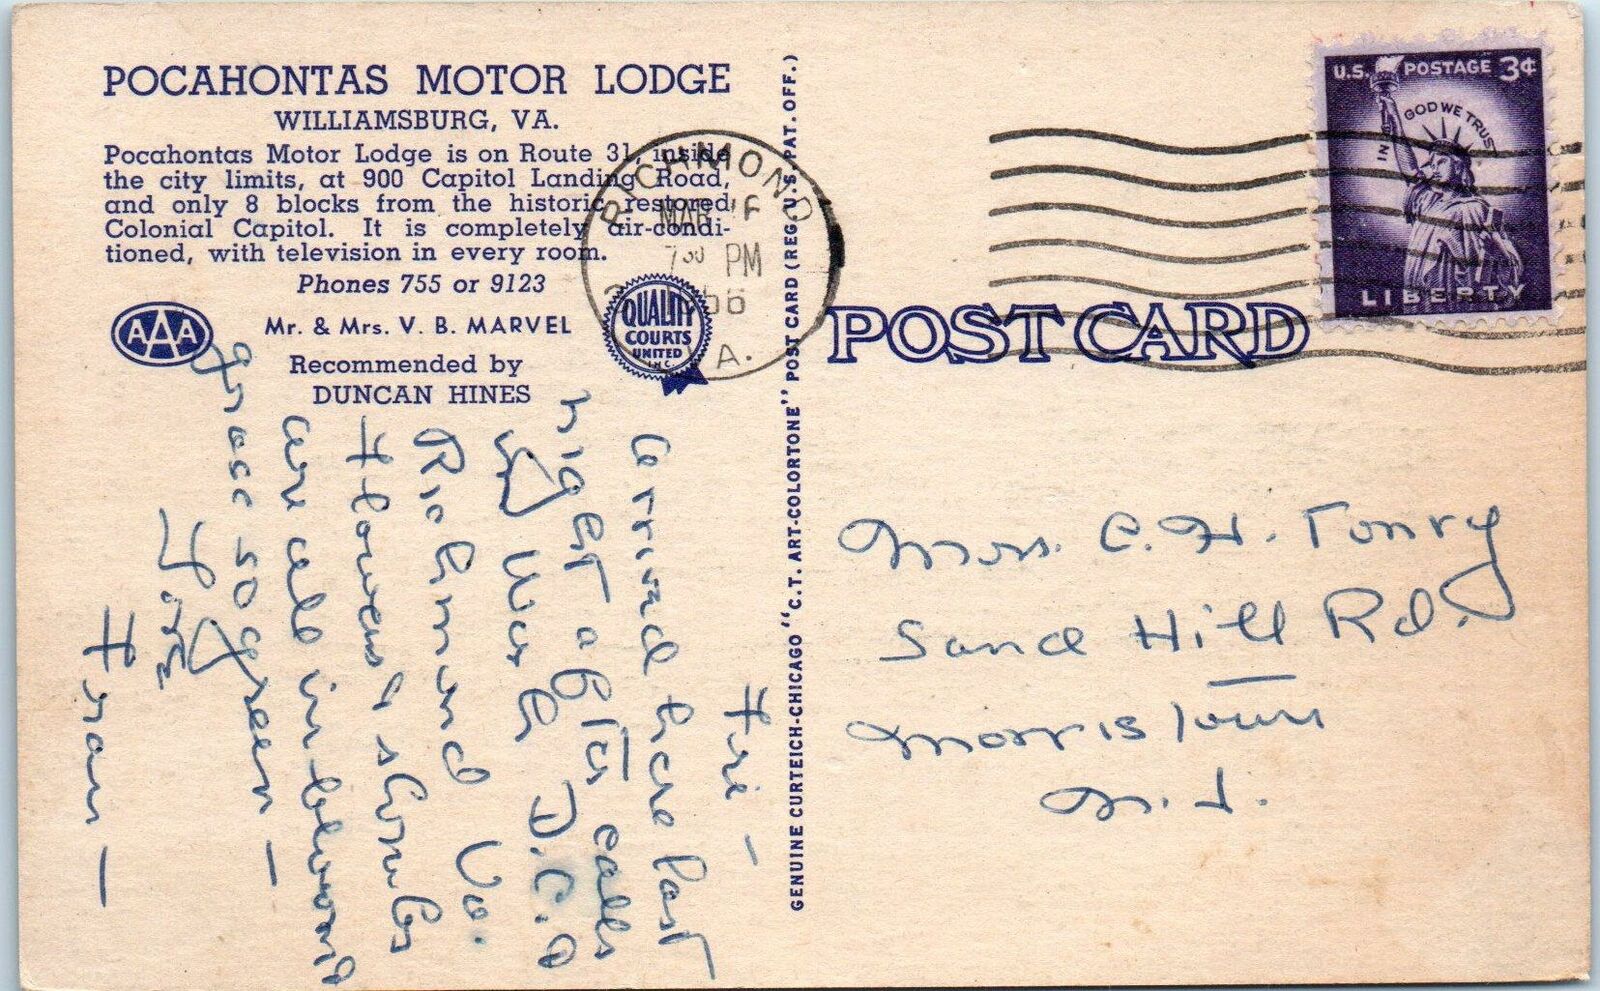 POCAHONTAS MOTOR LODGE
WILLIAMSBURG, VA.
Pocahontas Motor Lodge is on Route 31, inside
the city limits, at 900 Capitol Landing Road,
and only 8 blocks from the historic restored
Colonial Capitol. It is completely air-condi-
tioned, with television in every room.
Phones 755 or 9123
AAA
Mr. & Mrs. V. B. MARVEL
Recommended by
DUNCAN HINES
QUALITY
COURTS
UNITED
INC.
RICHMOND
MAR
730 PM
VA.
GENUINE CURTEICH-CHICAGO "C.T. ART-COLORTONE" POST CARD (REG. U.S. PAT. OFF.)
POST CARD
U.S. POSTAGE 3¢
IN GOD WE TRUST
LIBERTY
Fri —
Arrived here last
night after calls
Wash D.C. &
Richmond Va.
Flowers & shrubs
are all in bloom &
grass so green —
Love
Fran —
Mrs. C. H. Tonry
Sand Hill Rd.
Morristown
N. J.